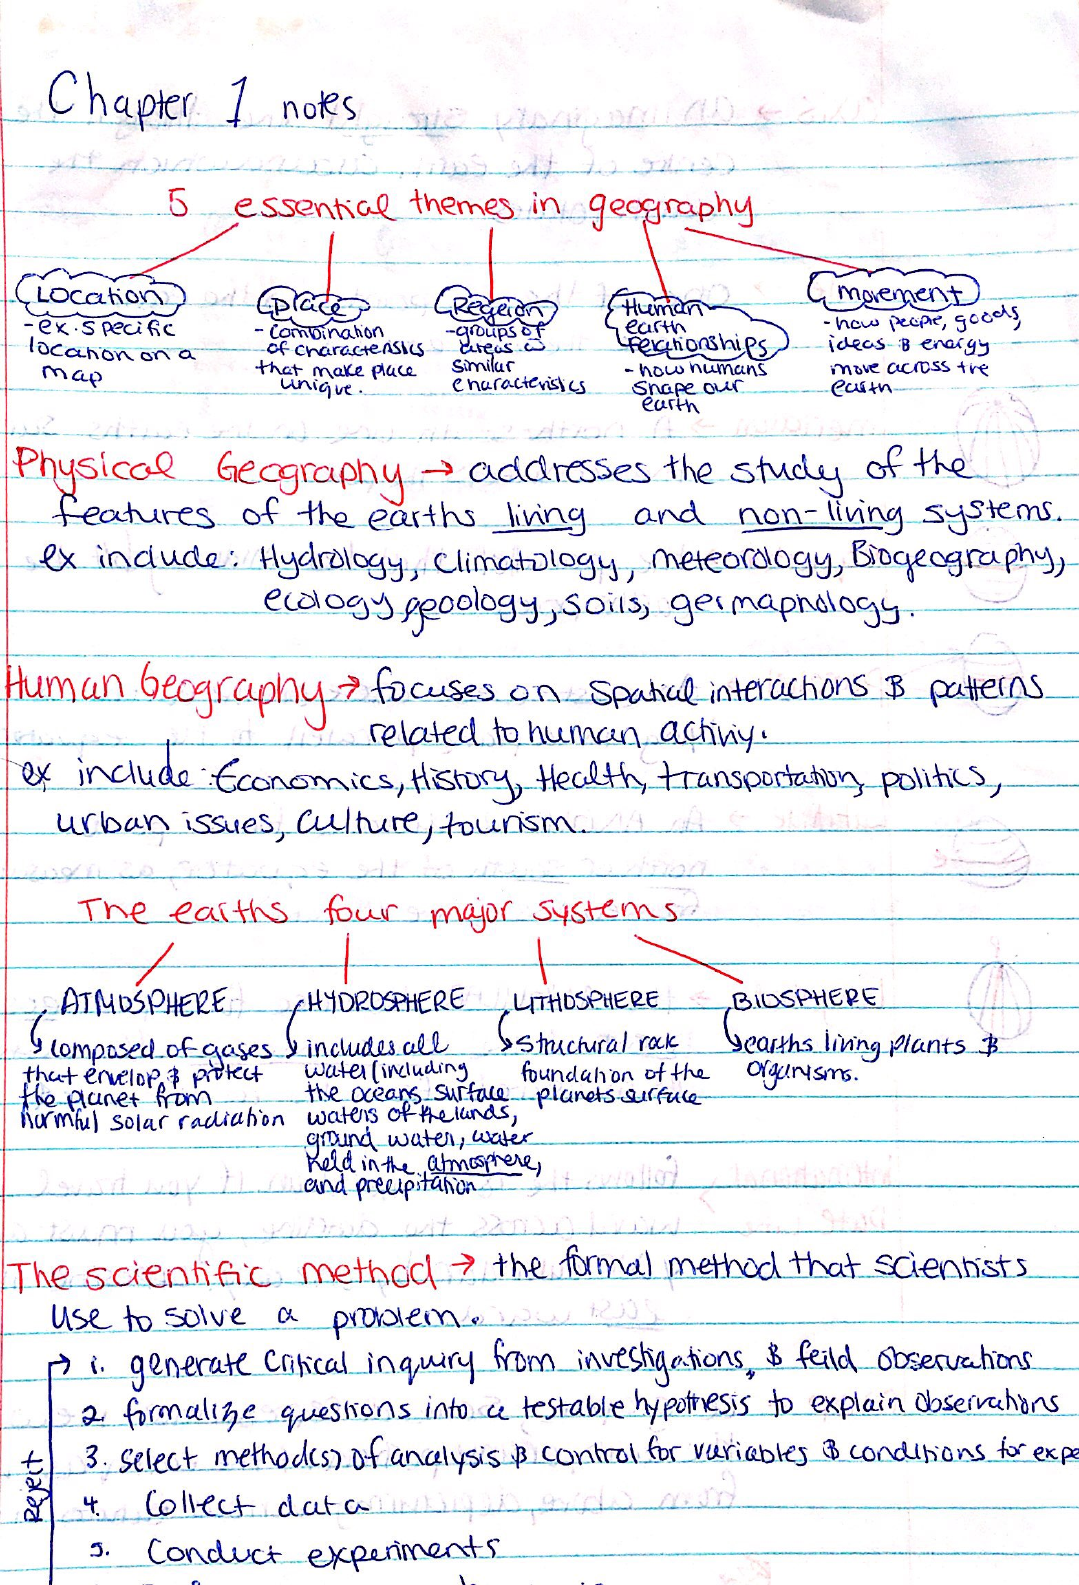 Chapter 1 notes
5 essential themes in geography
Location
-ex. specific
location on a
map
Place
-combination
of characteristics
that make place
unique.
Regeion
-groups of
areas w
similar
characteristics
Human
earth
relationships
-how humans
shape our
earth
movement
-how people, goods,
ideas & energy
move across the
earth
Physical Geography → addresses the study of the
features of the earths living and non-living systems.
ex include: Hydrology, Climatology, meteorology, Biogeography,
ecology, geology, soils, germaphology.
Human Geography → focuses on spatial interactions & patterns
related to human activiy.
ex include: Economics, History, Health, transportation, politics,
urban issues, culture, tourism.
The earths four major systems
ATMOSPHERE
composed of gases
that envelop & protect
the planet from
harmful solar radiation
HYDROSPHERE
includes all
water (including
the oceans, surface
waters of the lands,
ground water, water
held in the atmosphere,
and precipitation
LITHOSPHERE
structural rock
foundation of the
planets surface
BIOSPHERE
earths living plants &
organisms.
The scientific method → the formal method that scientists
use to solve a problem.
1. generate critical inquiry from investigations, & feild observations
2. formalize questions into a testable hypothesis to explain observations
3. select method(s) of analysis & control for variables & conditions for expe
Reject
4. Collect data
5. Conduct experiments